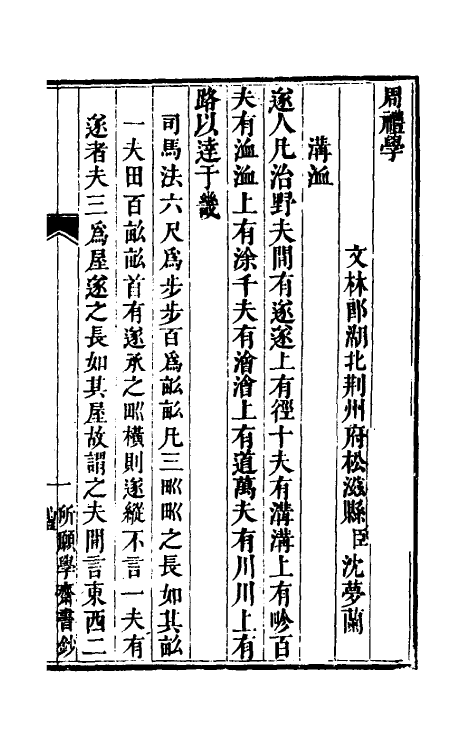 周禮學
文林郎湖北荆州府松滋縣臣沈夢蘭
溝洫
遂人凡治野夫間有遂遂上有徑十夫有溝溝上有畛百
夫有洫洫上有涂千夫有澮澮上有道萬夫有川川上有
路以達于畿
司馬法六尺爲步步百爲畝畝凡三甽甽之長如其畝
一夫田百畝畝首有遂承之甽橫則遂縱不言一夫有
遂者夫三爲屋遂之長如其屋故謂之夫間言東西二
一 所願學齋書鈔